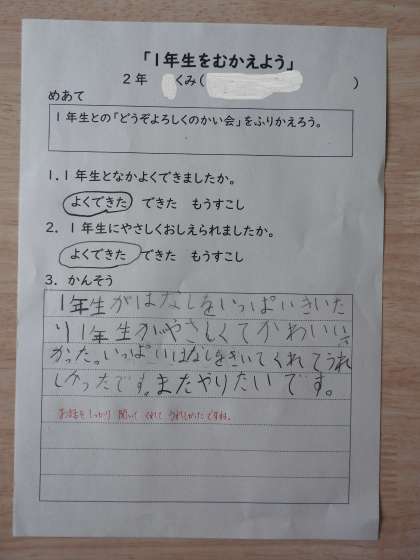 「１年生をむかえよう」
２年 くみ( )
めあて
１年生との「どうぞよろしくのかい会」をふりかえろう。
1. １年生となかよくできましたか。
よくできた できた もうすこし
2. １年生にやさしくおしえられましたか。
よくできた できた もうすこし
3. かんそう
1年生がはなしをいっぱいきいた
り1年生がやさしくてかわいい
かった。いっぱいはなしをきいてくれてうれ
しかったです。またやりたいです。
お話をしっかり聞いてくれてうれしかったですね。